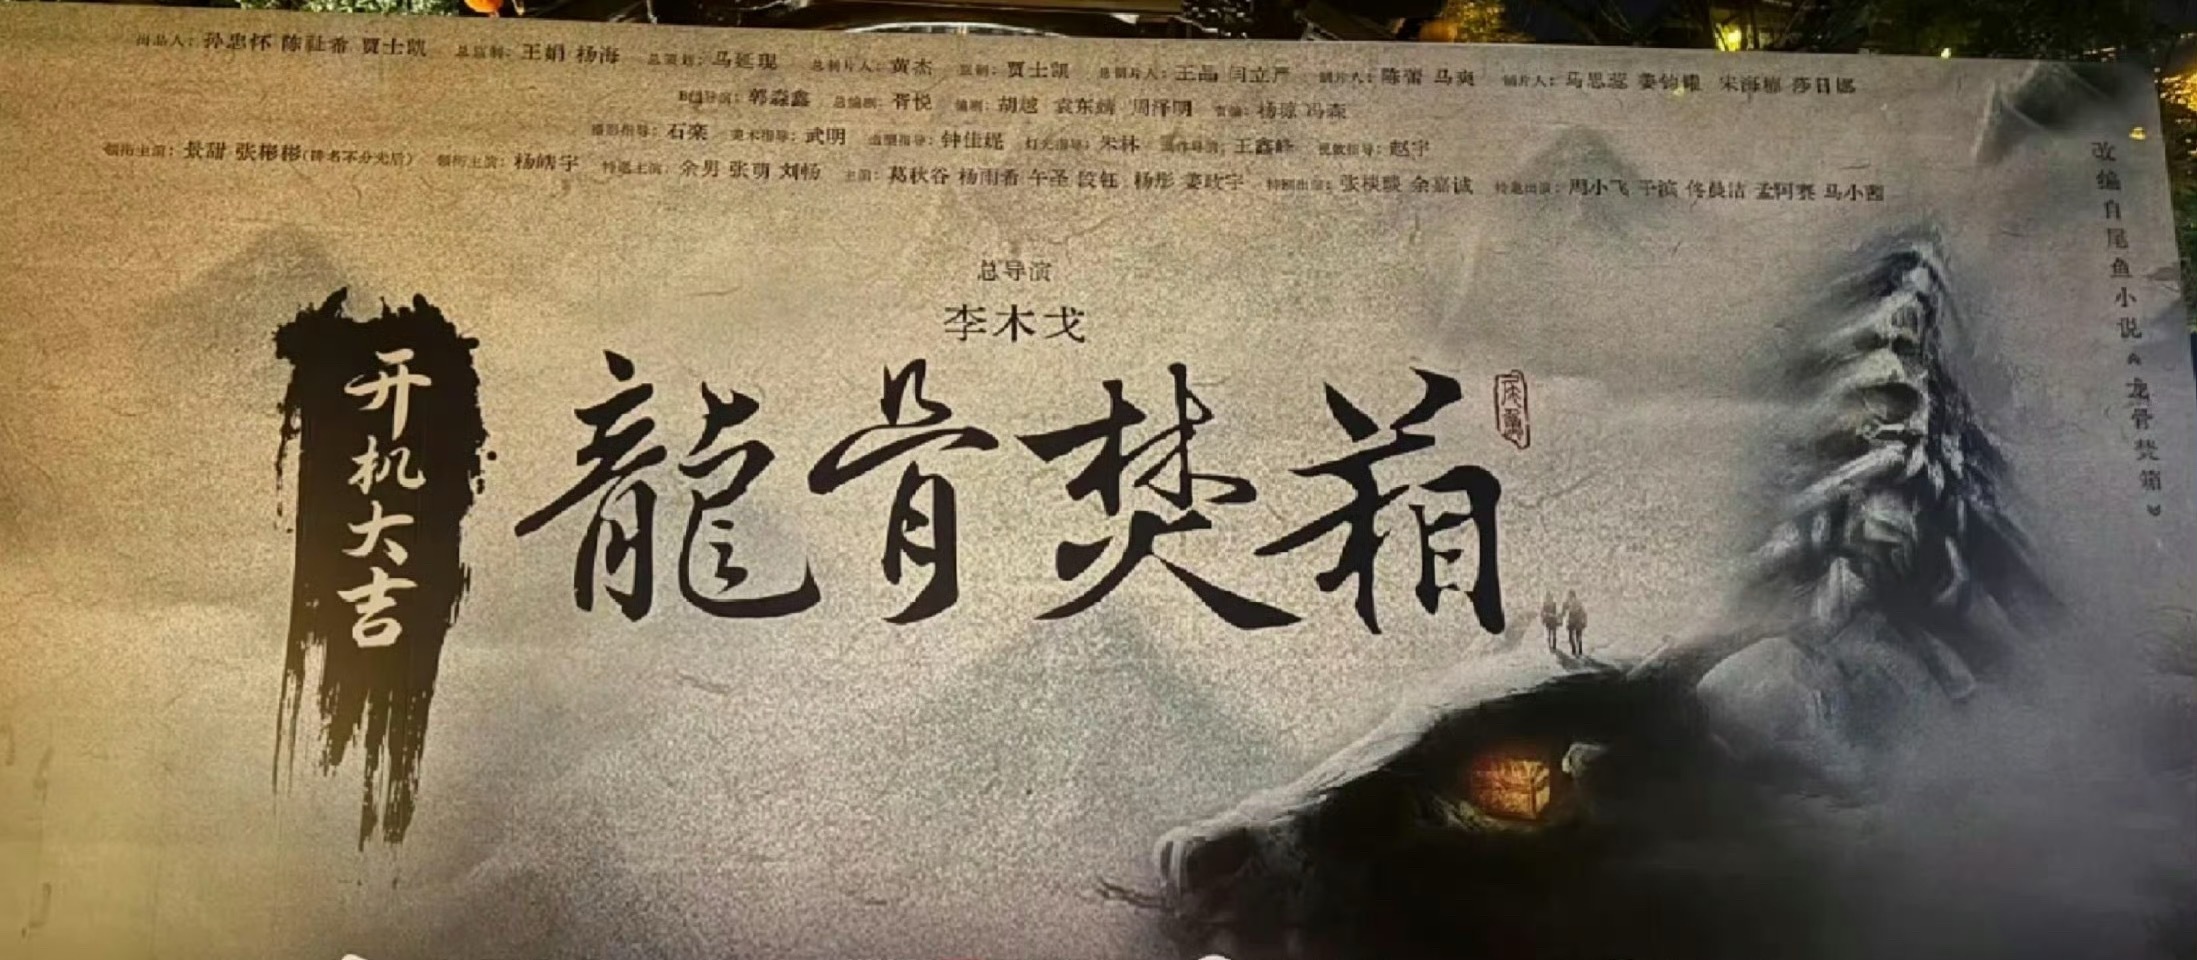 出品人：孙忠怀 陈祉希 贾士凯 总监制：王娟 杨海 总策划：马延琨 总制片人：黄杰 监制：贾士凯 总制片人：王晶 闫立严 制片人：陈蕾 马爽 制片人：马思蕊 姜钧 宋海楠 莎日娜
B组导演：郭淼鑫 总编剧：胥悦 编剧：胡越 袁东 周泽明 责编：杨琼 冯森
摄影指导：石栾 美术指导：武明 造型指导：钟佳妮 灯光指导：朱林 动作导演：王鑫峰 视效指导：赵宇
领衔主演：景甜 张彬彬(排名不分先后) 领衔主演：杨皓宇 特邀主演：余男 张萌 刘畅 主演：葛秋谷 杨雨希 午圣 段钰 杨彤 姜政宇 特别出演：张棪琰 余嘉诚 特邀出演：周小飞 于滨 佟晨洁 孟阿赛 马小茜
总导演
李木戈
龍骨焚箱
开机大吉
改编自尾鱼小说《龙骨焚箱》